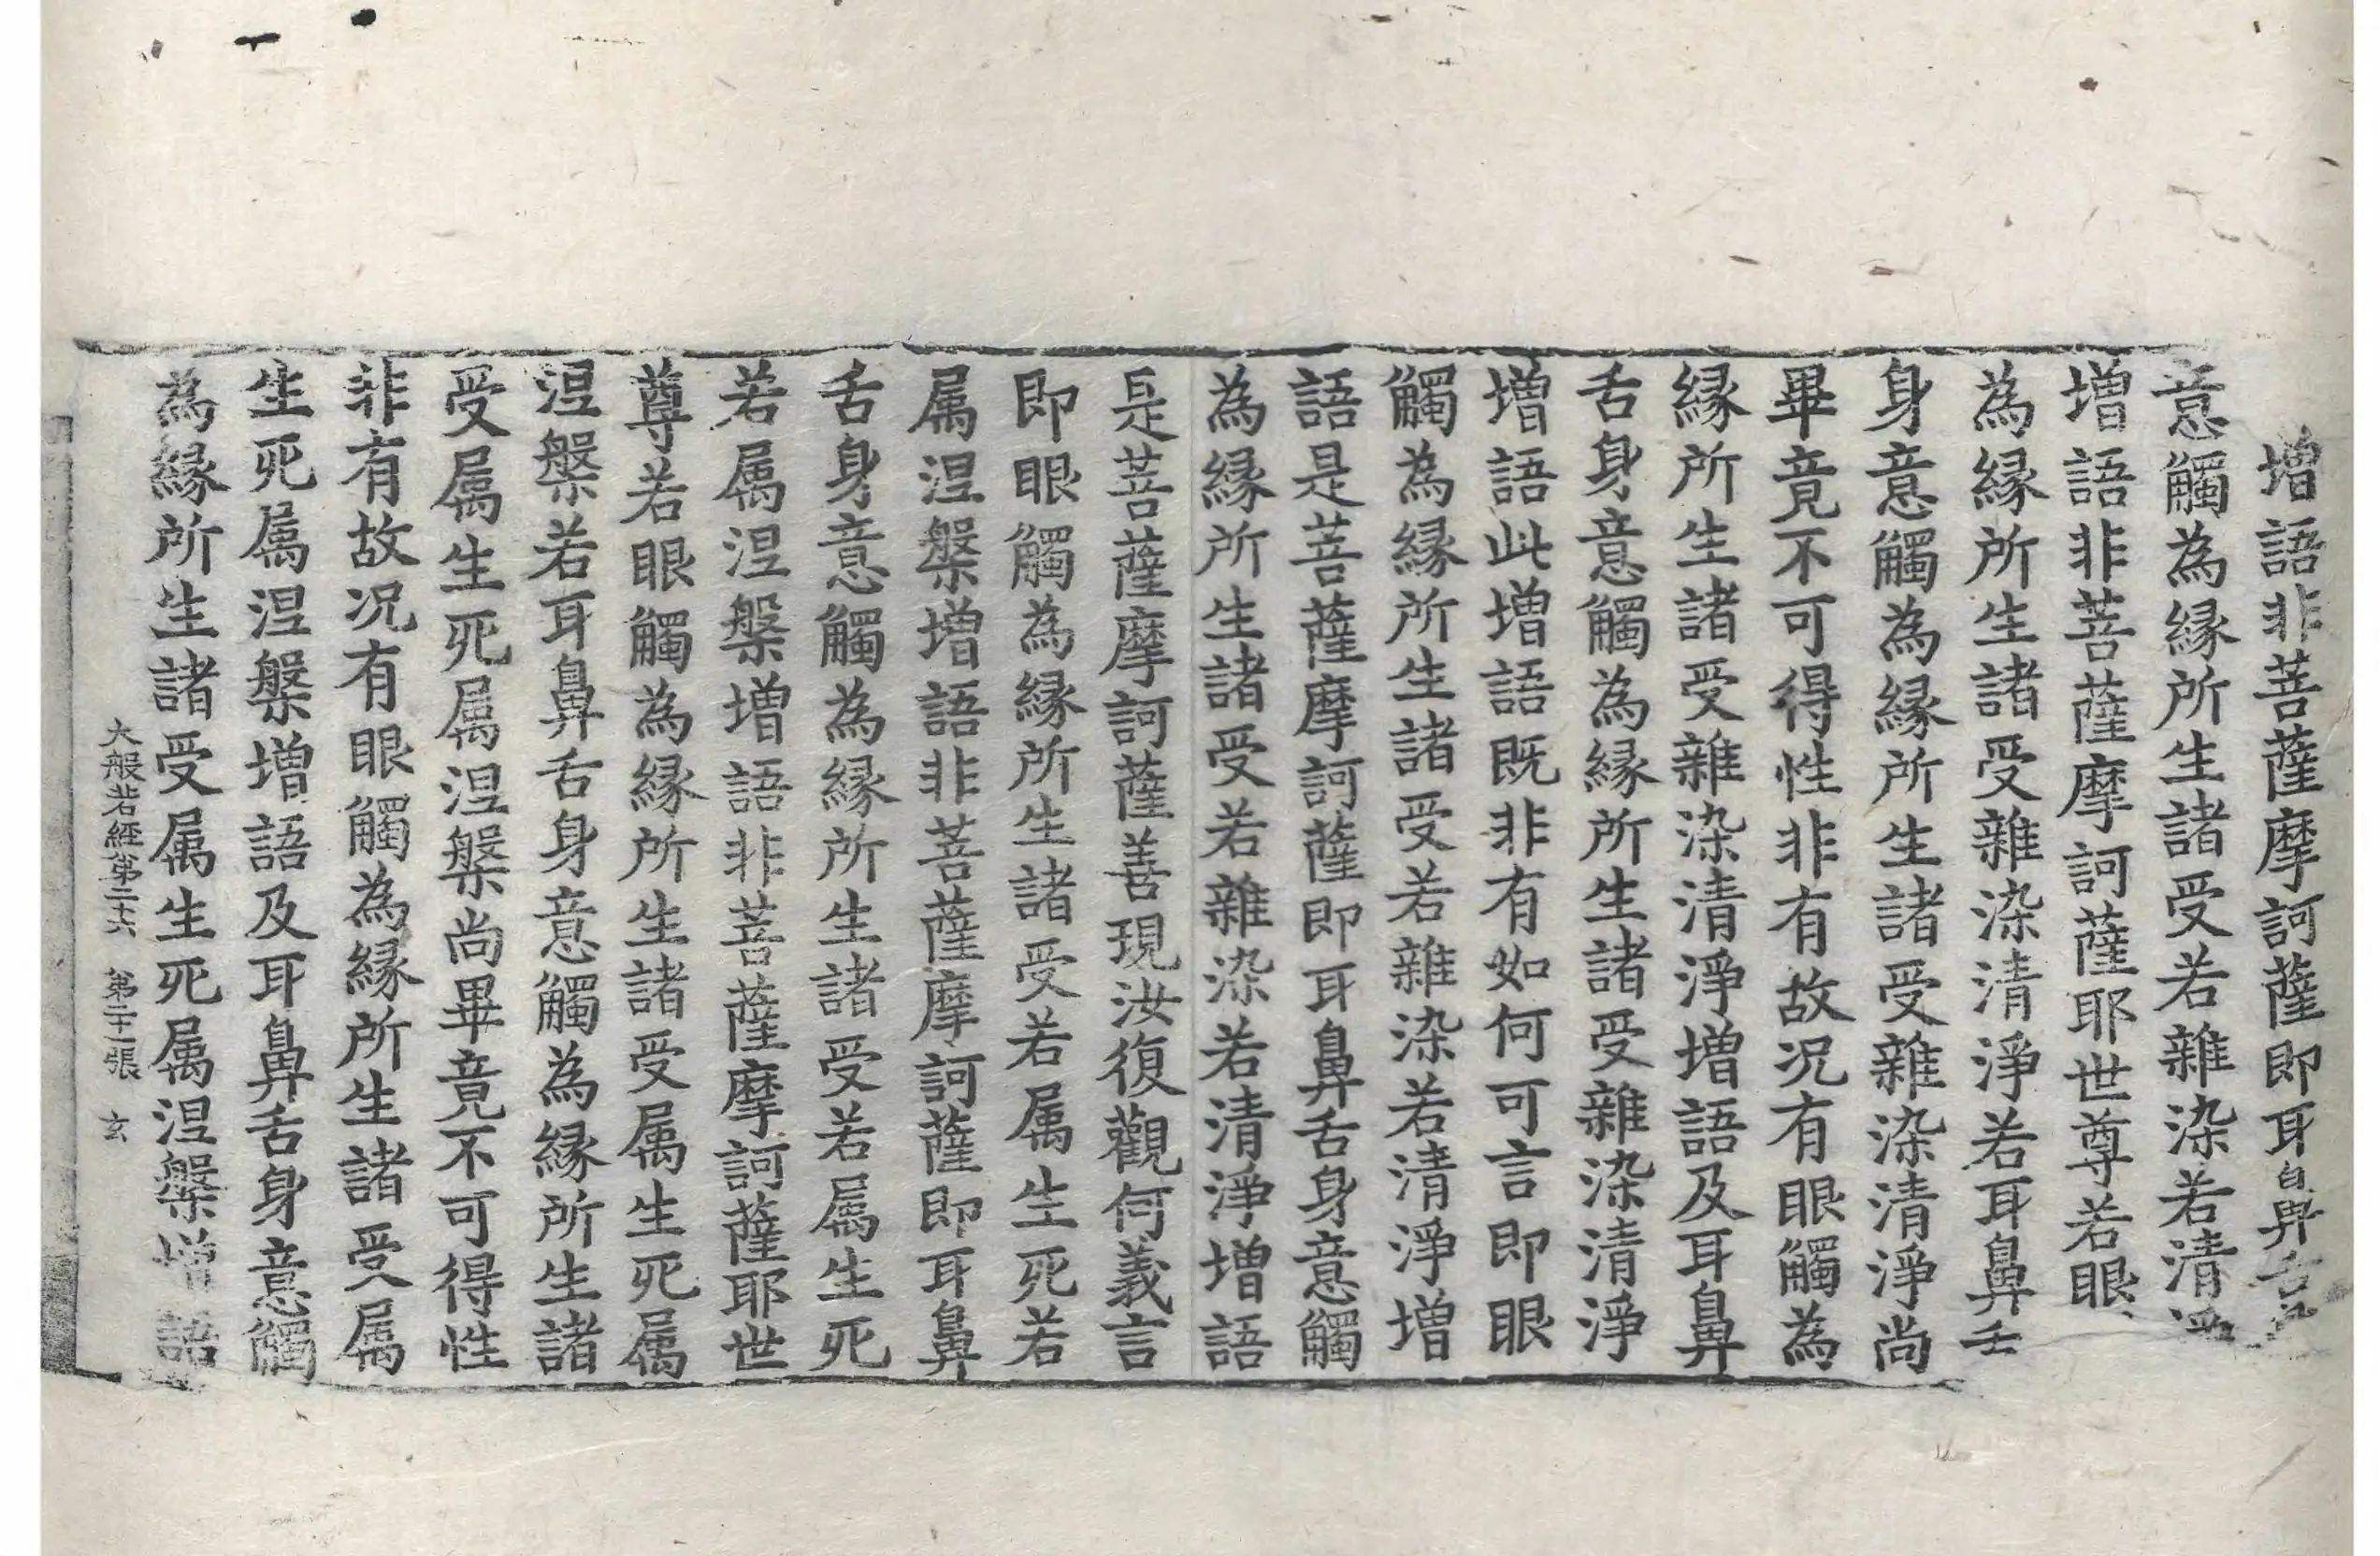 增語非菩薩摩訶薩即耳鼻舌
意觸為縁所生諸受若雜染若清淨
增語非菩薩摩訶薩耶世尊若眼
為縁所生諸受雜染清淨若耳鼻
身意觸為縁所生諸受雜染清淨尚
畢竟不可得性非有故况有眼觸為
縁所生諸受雜染清淨增語及耳鼻
舌身意觸為縁所生諸受雜染清淨
增語此增語既非有如何可言即眼
觸為縁所生諸受若雜染若清淨增
語是菩薩摩訶薩即耳鼻舌身意觸
為縁所生諸受若雜染若清淨增語
是菩薩摩訶薩善現汝復觀何義言
即眼觸為縁所生諸受若属生死若
属涅槃增語非菩薩摩訶薩即耳鼻
舌身意觸為縁所生諸受若属生死
若属涅槃增語非菩薩摩訶薩耶世
尊若眼觸為縁所生諸受属生死属
涅槃若耳鼻舌身意觸為縁所生諸
受属生死属涅槃尚畢竟不可得性
非有故况有眼觸為縁所生諸受属
生死属涅槃增語及耳鼻舌身意觸
為縁所生諸受属生死属涅槃增語
大般若經第二十六 第二十二張 玄